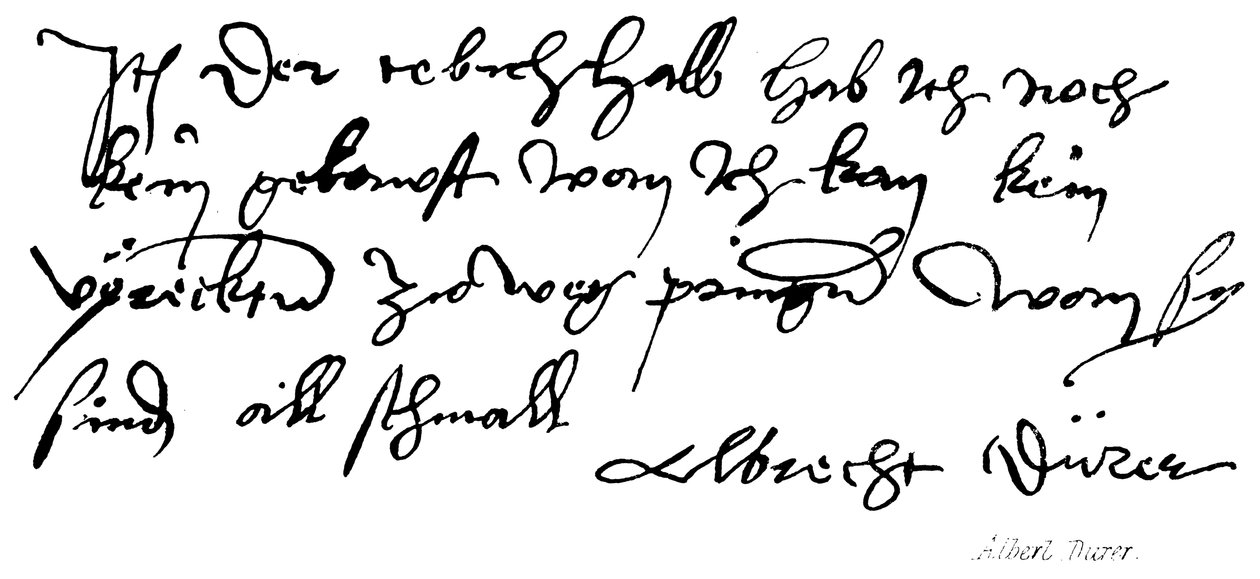 der tebichhalb hab Ich noch
kein gekawft won Ich kan kein
vÿrecktn zw weg pringn won sy
sind all schmall
Albrecht Dürer
Albert Durer.